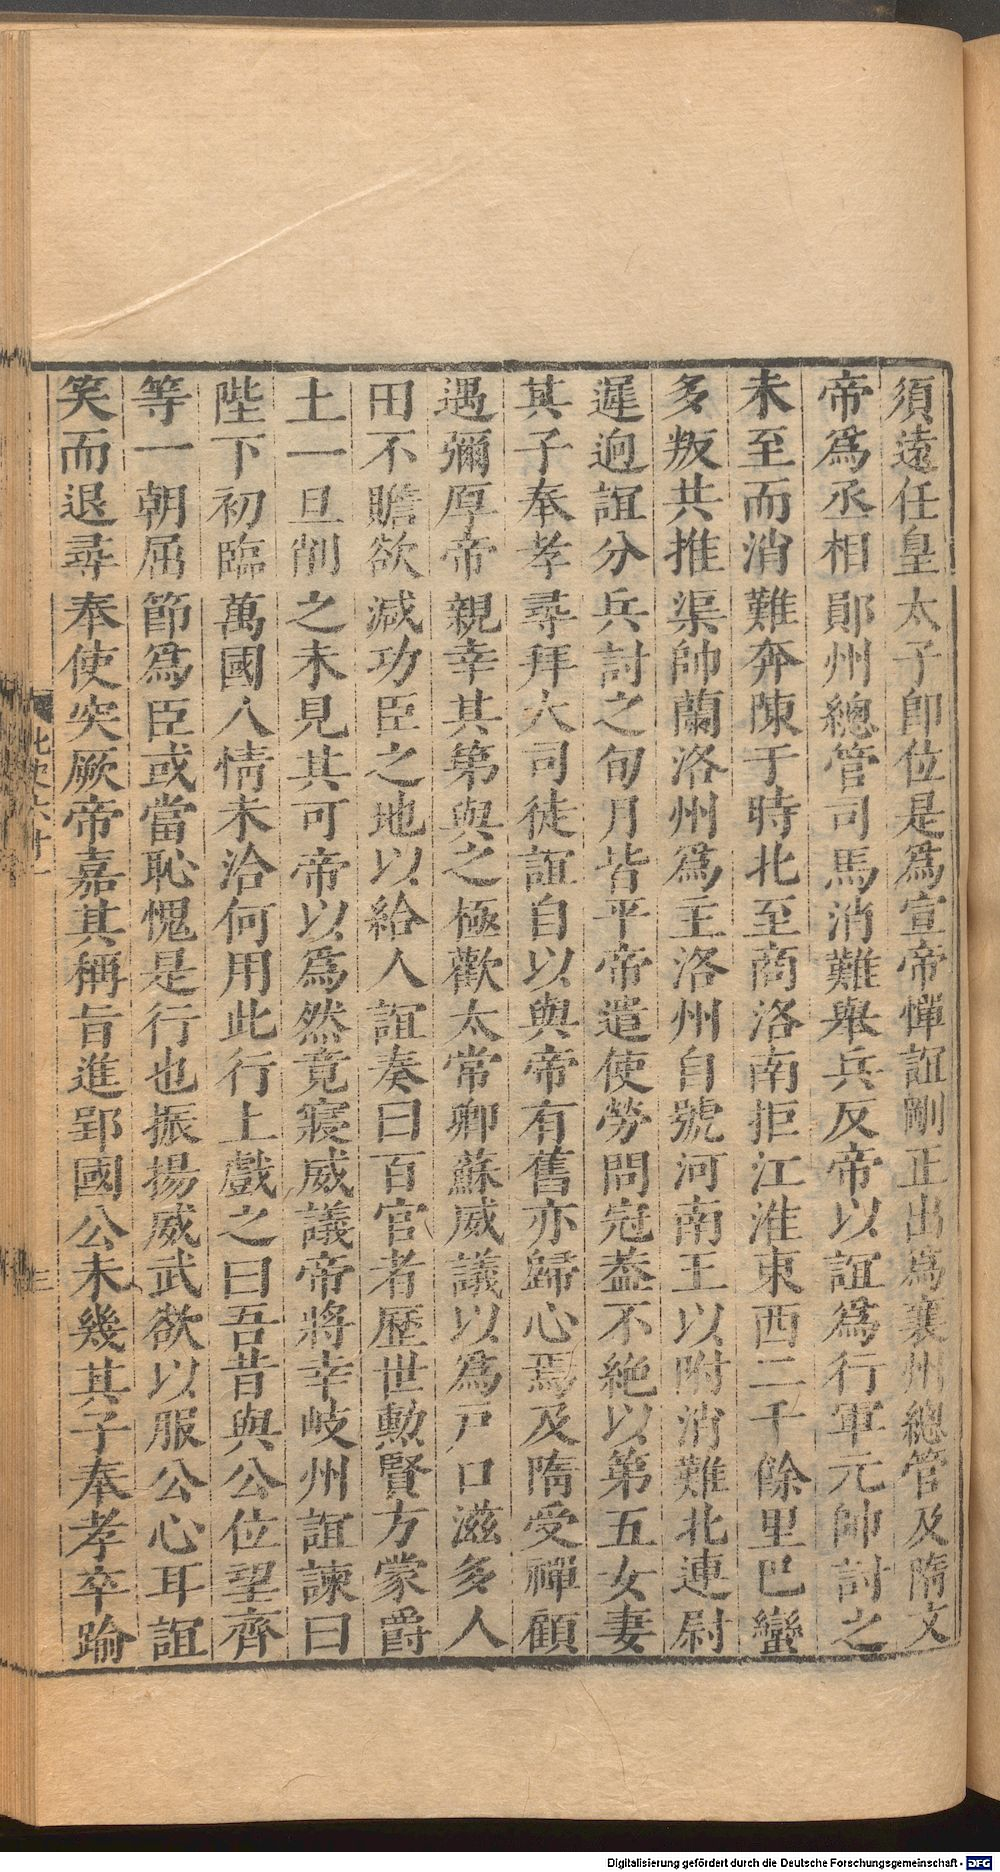 須遠任皇太子卽位是爲宣帝憚誼剛正出爲襄州總管及隋文
帝爲丞相鄖州總管司馬消難舉兵反帝以誼爲行軍元帥討之
未至而消難奔陳于時北至商洛南拒江淮東西二千餘里巴蠻
多叛共推渠帥蘭洛州爲主洛州自號河南王以附消難北連尉
遲迥誼分兵討之旬月皆平帝遣使勞問冠蓋不絶以第五女妻
其子奉孝尋拜大司徒誼自以與帝有舊亦歸心焉及隋受禪顧
遇彌厚帝親幸其第與之極歡太常卿蘇威議以爲戸口滋多人
田不贍欲減功臣之地以給人誼奏曰百官者歷世勲賢方蒙爵
土一旦削之未見其可帝以爲然竟寢威議帝將幸岐州誼諫曰
陛下初臨萬國人情未洽何用此行上戲之曰吾昔與公位望齊
等一朝屈節爲臣或當恥愧是行也振揚威武欲以服公心耳誼
笑而退尋奉使突厥帝嘉其稱旨進郢國公未幾其子奉孝卒踰
北史六十一
三
Digitalisierung gefördert durch die Deutsche Forschungsgemeinschaft - DFG